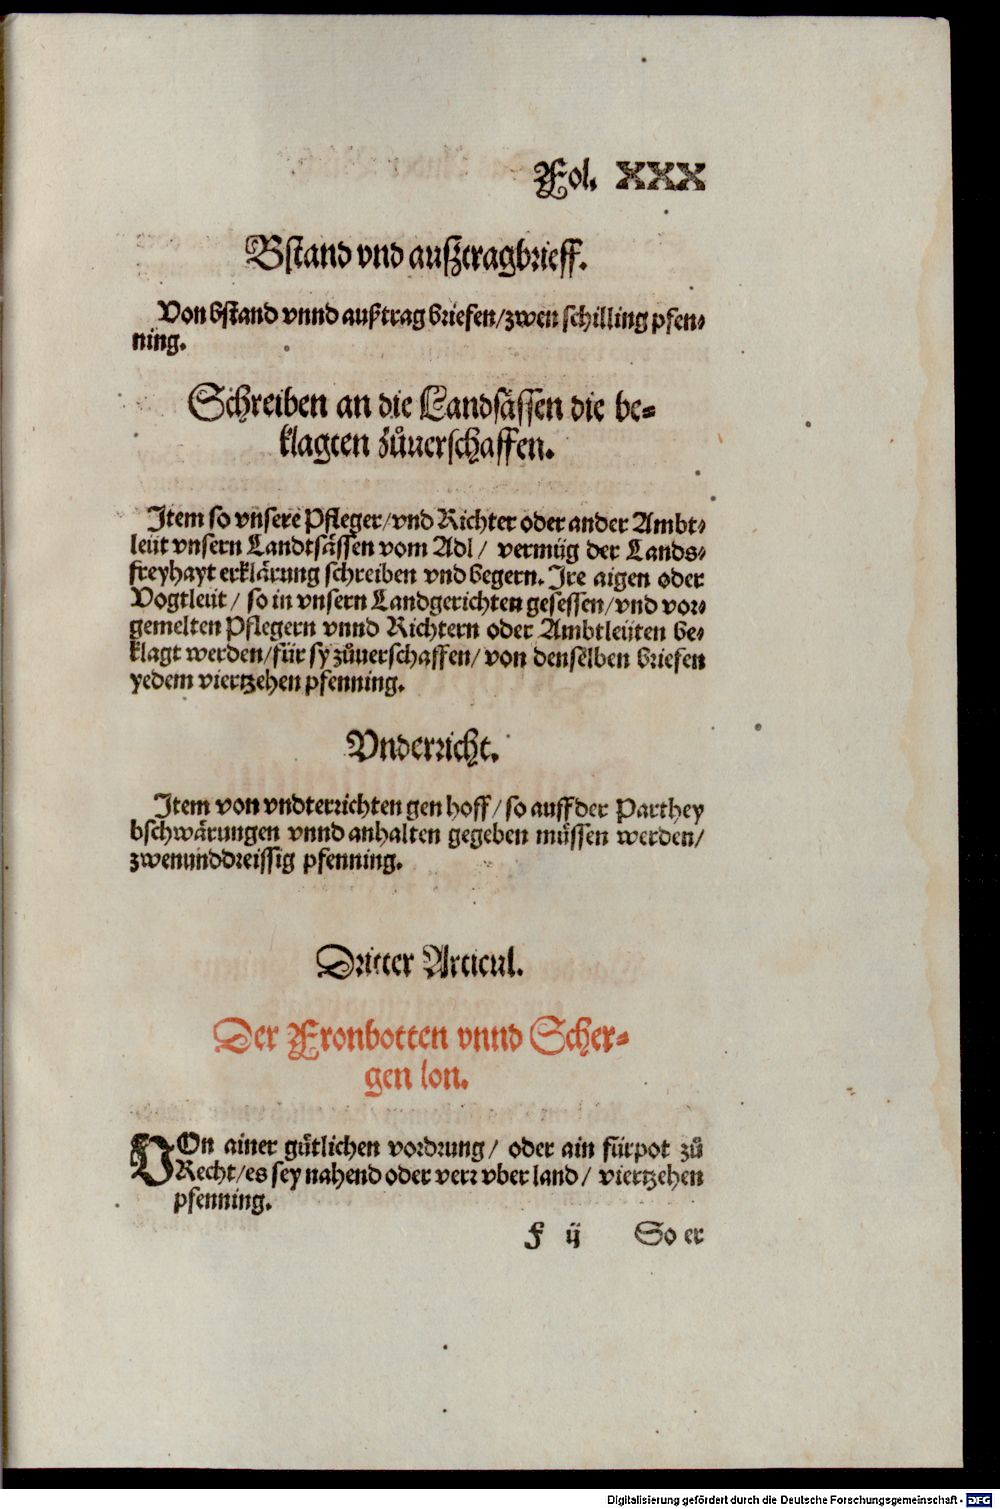 Fol. XXX
Bstand vnd außtragbrieff.
Von bstand vnnd außtrag briefen/zwen schilling pfen⸗
ning.
Schreiben an die Landsässen die be⸗
klagten zůuerschaffen.
Item so vnsere Pfleger/vnd Richter oder ander Ambt⸗
leüt vnsern Landtsässen vom Adl/ vermüg der Lands⸗
freyhayt erklärung schreiben vnd begern. Ire aigen oder
Vogtleüt/ so in vnsern Landgerichten gesessen/vnd vor⸗
gemelten Pflegern vnnd Richtern oder Ambtleüten be⸗
klagt werden/für sy zůuerschaffen/ von denselben briefen
yedem viertzehen pfenning.
Vnderricht.
Item von vndterrichten gen hoff/ so auff der Parthey
bschwärungen vnnd anhalten gegeben müssen werden/
zwenunddreissig pfenning.
Dritter Articul.
Der Fronbotten vnnd Scher⸗
gen lon.
VOn ainer gütlichen vordrung/ oder ain fürpot zů
Recht/es sey nahend oder verr vber land/ viertzehen
pfenning.
F ij So er
Digitalisierung gefördert durch die Deutsche Forschungsgemeinschaft - DFG